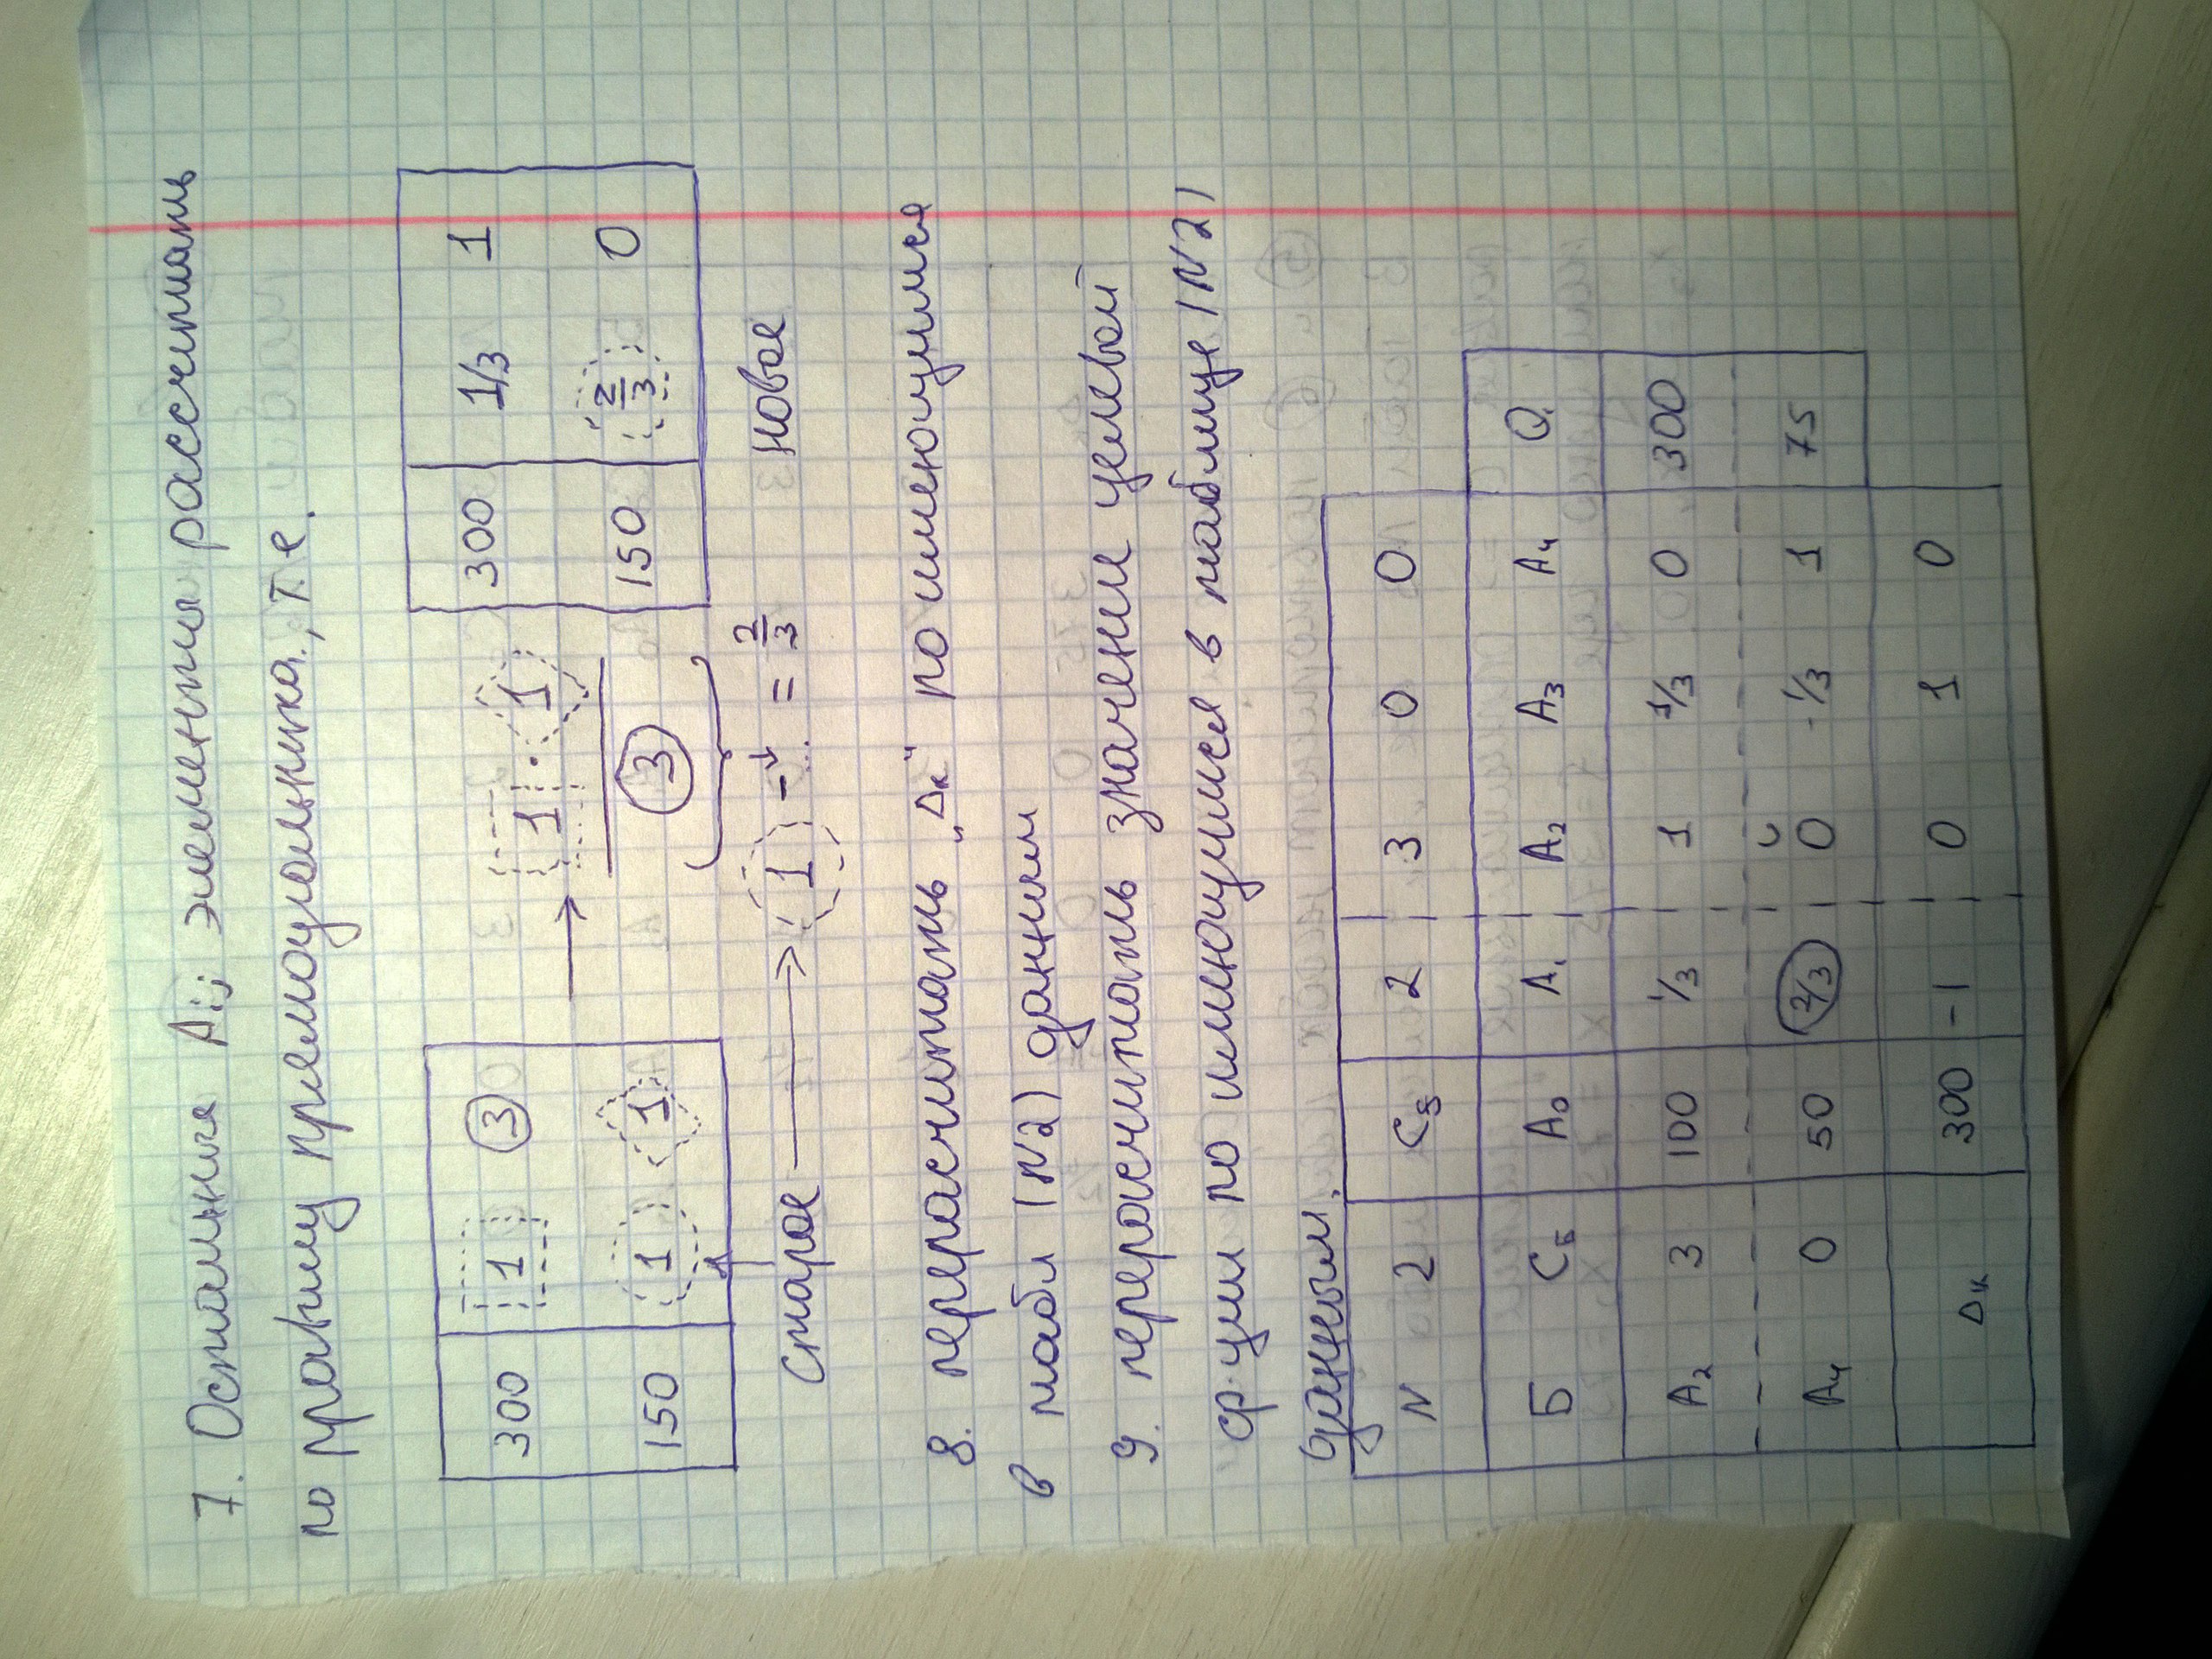 7. Остальные Aij элементы рассчитать
по правилу прямоугольника, т.е.
300 1 3
150 1 1
→ 1 · 1
3
300 1/3 1
150 2/3 0
старое → 1 - = 2/3 новое
8. пересчитать "Δк" по имеющимся
в табл (N2) данным
9. пересчитать значение целевой
ф-ции по имеющимся в таблице (N2)
данным.
N 2 Cб 2 3 0 0
Б Cб A0 A1 A2 A3 A4 Q
A2 3 100 1/3 1 1/3 0 300
A4 0 50 2/3 0 -1/3 1 75
Δк 300 -1 0 1 0